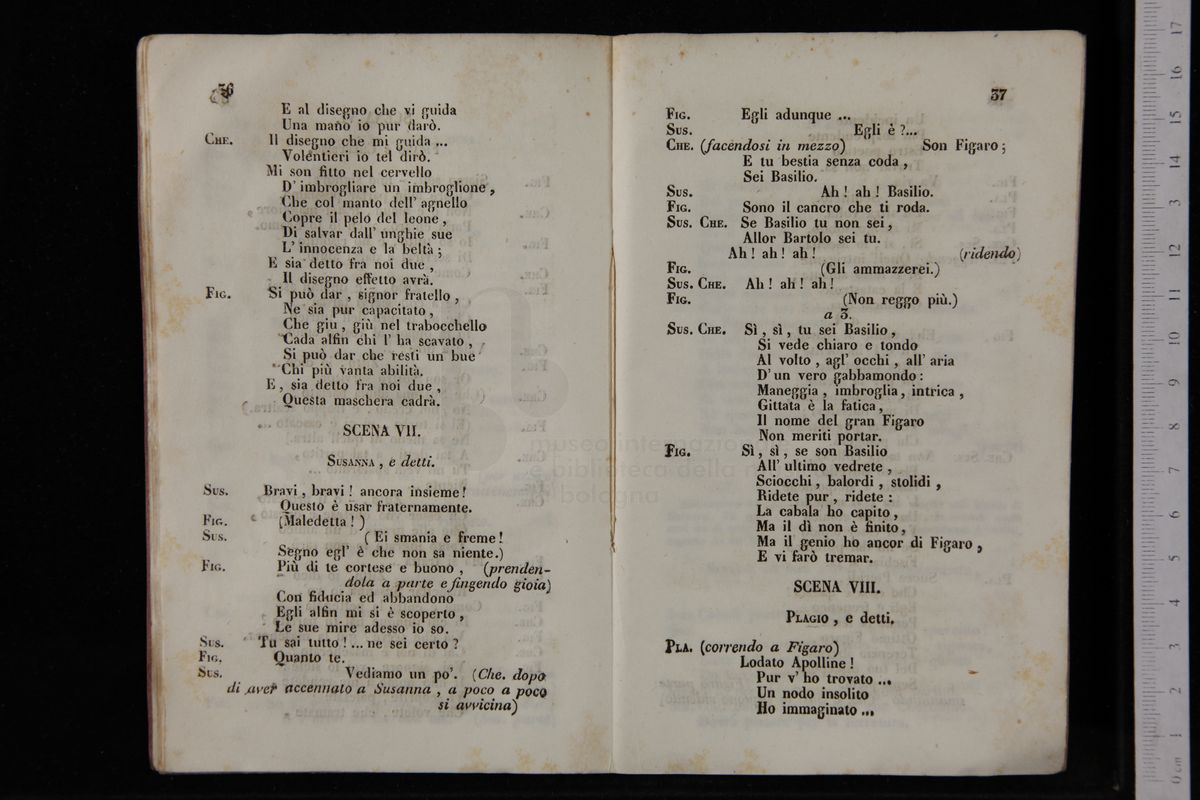 36
E al disegno che vi guida
Una mano io pur darò.
CHE. Il disegno che mi guida ...
Volentieri io tel dirò.
Mi son fitto nel cervello
D' imbrogliare un imbroglione ,
Che col manto dell' agnello
Copre il pelo del leone ,
Di salvar dall' unghie sue
L' innocenza e la beltà ;
E sia detto fra noi due ,
Il disegno effetto avrà.
FIG. Si può dar , signor fratello ,
Ne sia pur capacitato ,
Che giu , giù nel trabocchello
Cada alfin chi l' ha scavato ,
Si può dar che resti un bue
Chi più vanta abilità.
E , sia detto fra noi due ,
Questa maschera cadrà.
SCENA VII.
SUSANNA , e detti.
SUS. Bravi , bravi ! ancora insieme !
Questo è usar fraternamente.
FIG. (Maledetta ! )
SUS. ( Ei smania e freme !
Segno egl' è che non sa niente.)
FIG. Più di te cortese e buono , (prenden-
dola a parte e fingendo gioia)
Con fiducia ed abbandono
Egli alfin mi si è scoperto ,
Le sue mire adesso io so.
SUS. Tu sai tutto ! ... ne sei certo ?
FIG. Quanto te.
SUS. Vediamo un po'. (Che. dopo
di aver accennato a Susanna , a poco a poco
si avvicina)
37
FIG. Egli adunque ...
SUS. Egli è ?...
CHE. (facendosi in mezzo) Son Figaro ;
E tu bestia senza coda ,
Sei Basilio.
SUS. Ah ! ah ! Basilio.
FIG. Sono il cancro che ti roda.
SUS. CHE. Se Basilio tu non sei ,
Allor Bartolo sei tu.
Ah ! ah ! ah ! (ridendo)
FIG. (Gli ammazzerei.)
SUS. CHE. Ah ! ah ! ah !
FIG. (Non reggo più.)
a 3.
SUS. CHE. Sì , sì , tu sei Basilio ,
Si vede chiaro e tondo
Al volto , agl' occhi , all' aria
D' un vero gabbamondo :
Maneggia , imbroglia , intrica ,
Gittata è la fatica ,
Il nome del gran Figaro
Non meriti portar.
FIG. Sì , sì , se son Basilio
All' ultimo vedrete ,
Sciocchi , balordi , stolidi ,
Ridete pur , ridete :
La cabala ho capito ,
Ma il dì non è finito ,
Ma il genio ho ancor di Figaro ,
E vi farò tremar.
SCENA VIII.
PLAGIO , e detti.
PLA. (correndo a Figaro)
Lodato Apolline !
Pur v' ho trovato ...
Un nodo insolito
Ho immaginato ...